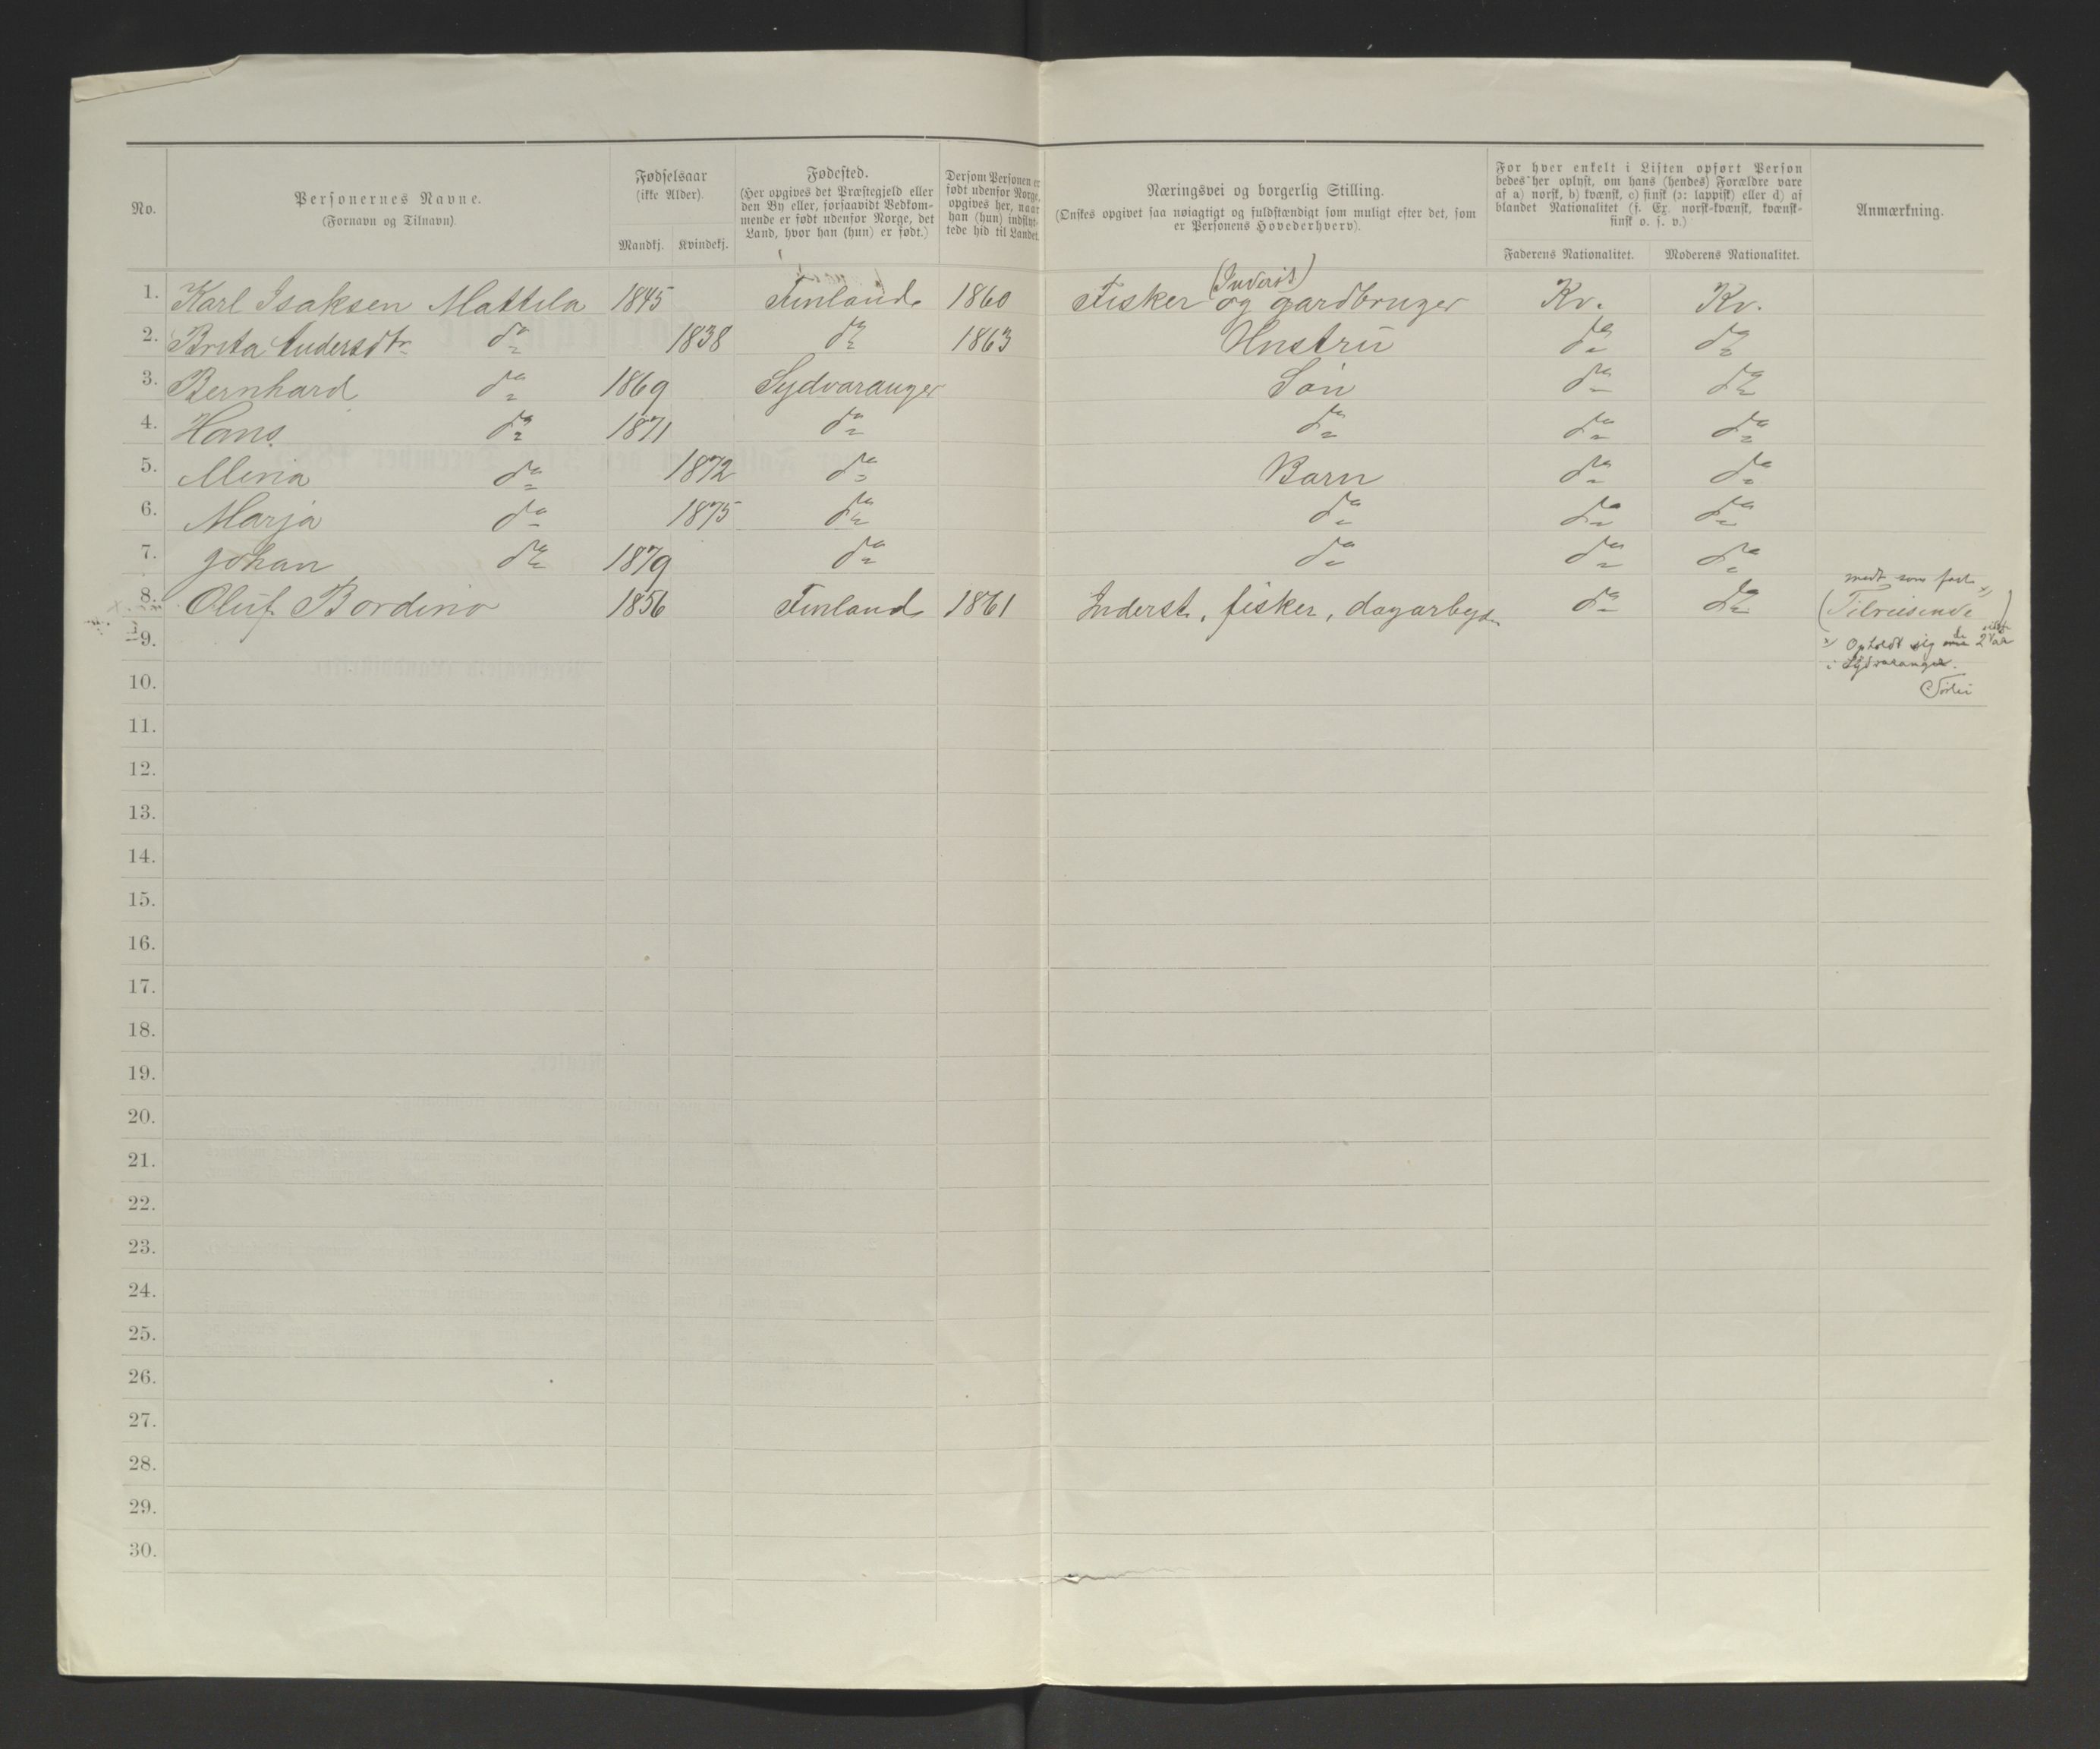 No.
Personernes Navne.
(Fornavn og Tilnavn).
Fødselsaar
(ikke Alder).
Mandkj. Kvindekj.
Fødested.
(Her opgives det Præstegjeld eller
den By eller, forsaavidt Vedkom-
mende er født udenfor Norge, det
Land, hvor han (hun) er født.)
Dersom Personen er
født udenfor Norge,
opgives her, naar
han (hun) indflyt-
tede hid til Landet.
Næringsvei og borgerlig Stilling.
(Ønskes opgivet saa nøiagtigt og fuldstændigt som muligt efter det, som
er Personens Hovederhverv).
For hver enkelt i Listen opført Person
bedes her oplyst, om hans (hendes) Forældre vare
af a) norsk, b) kvænsk, c) finsk (ɔ: lappisk) eller d) af
blandet Nationalitet (f. Ex. norsk-kvænsk, kvænsk-
finsk o. s. v.)
Faderens Nationalitet. Moderens Nationalitet.
Anmærkning.
(Inderst)
1. Karl Isaksen Mattila 1845 Finland 1860 Fisker og gardbruger Kv. Kv.
2. Brita Andersdtr do 1838 do 1863 Hustru do do
3. Bernhard do 1869 Sydvaranger Søn do do
4. Hans do 1871 do do do do
5. Meria do 1872 do Barn do do
6. Marja do 1875 do do do do
7. Johan do 1879 do do do do
8. Oluf Bordino 1856 Finland 1861 Inderst, fisker, dagarbejd do do (Tilreisende)
9.
x) Opholdt sig de 2 aar
i Sydvaranger.
10.
11.
12.
13.
14.
15.
16.
17.
18.
19.
20.
21.
22.
23.
24.
25.
26.
27.
28.
29.
30.